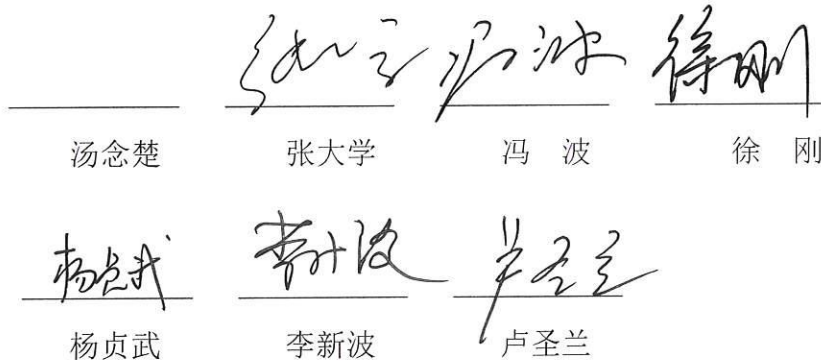 张大学 冯波 徐刚
汤念楚 张大学 冯 波 徐 刚
杨贞武 李新波 卢圣兰
杨贞武 李新波 卢圣兰